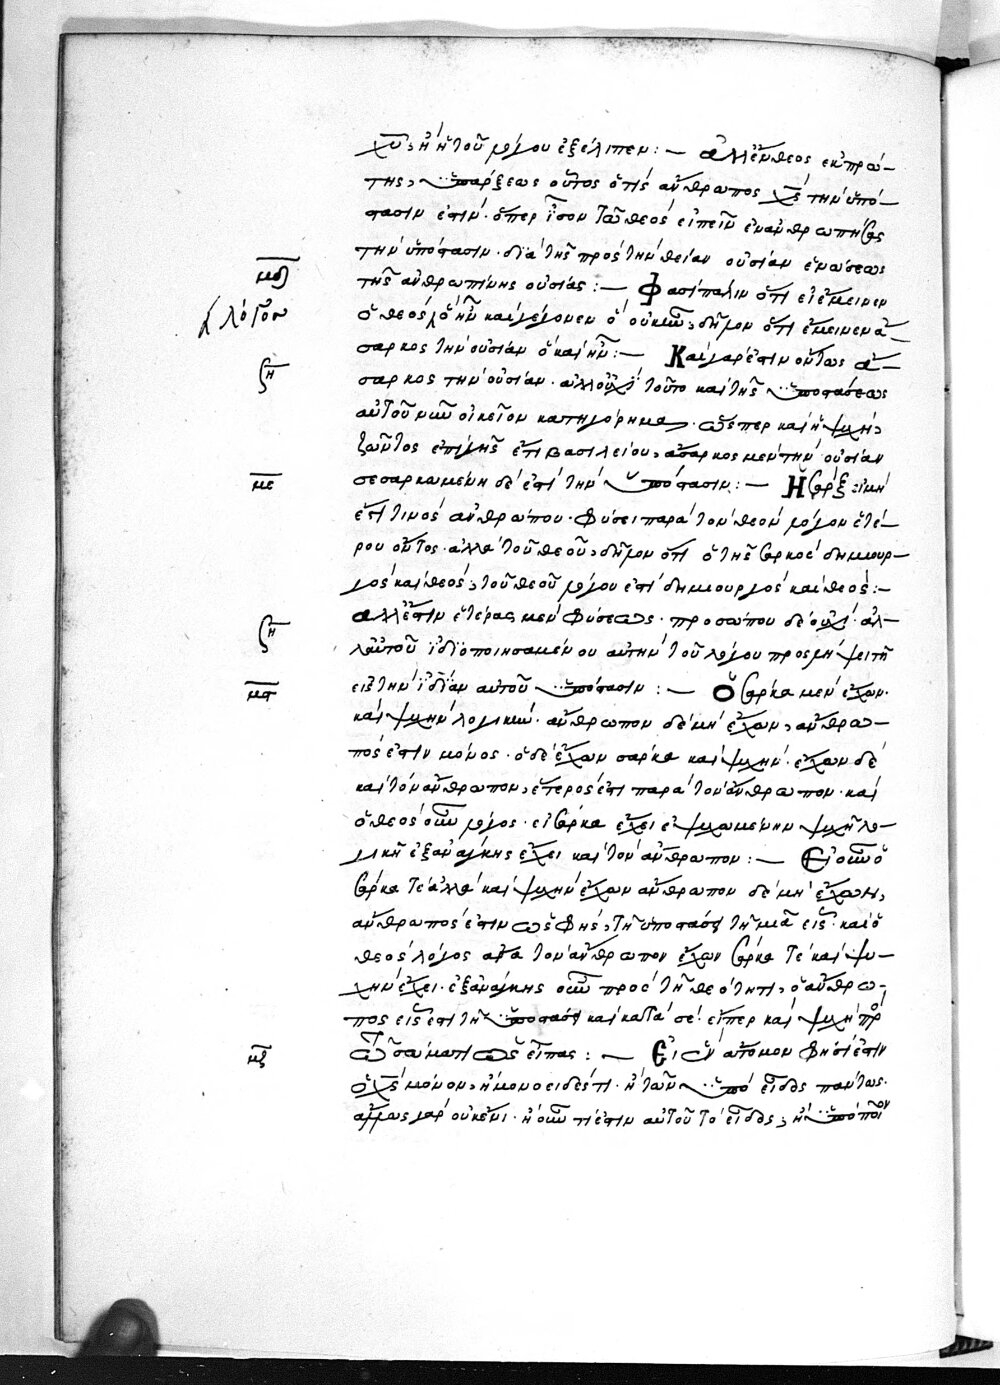 χυ, ἢ ἡ τοῦ λόγου ἐξέλιπεν :— ἀλλ' ἔνθεος ἐκ πρώ–
της, ὑπάρξεως οὗτος ὅτι ὁ ἄνθρωπος χς τὴν ὑπό–
στασιν ἐστιν· ὅπερ ἴσον τῶ θεὸς εἰπεῖν ἐνανθρωπήσας
τὴν ὑπόστασιν· διὰ τῆς πρὸς τὴν θείαν οὐσίαν ἑνώσεως
μδ
τῆς ἀνθρωπίνης οὐσίας :— Φασὶ πάλιν ὅτι εἰ ἔμεινεν
λόγον
ὁ θεὸς ὃ ἦν καὶ γέγονεν ὃ οὐκ ἦν, δῆλον ὅτι ἔμεινεν ἄ–
σαρκος τὴν οὐσίαν ὃ καὶ ἦν :— Καὶ γάρ ἐστιν οὕτως ἄ–
ζη
σαρκος τὴν οὐσίαν· ἀλλ' οὐχὶ τοῦτο καὶ τῆς ὑποστάσεως
αὐτοῦ νῦν οἰκεῖον κατηγόρημα· ὥσπερ καὶ ἡ ψυχὴ,
ζῶντος ἐπὶ γῆς ἔτι βασιλείου, ἄσαρκος μὲν τὴν οὐσίαν
με
σεσαρκωμένη δέ ἐστι τὴν ὑπόστασιν :— Ἡ σὰρξ εἰ μὴ
ἔστι τινὸς ἀνθρώπου· φύσει παρὰ τὸν θεὸν λόγον ἑτέ–
ρου ὄντος· ἀλλὰ τοῦ θεοῦ, δῆλον ὅτι ὁ τῆς σαρκὸς δημιουρ–
γὸς καὶ θεὸς, τοῦ θεοῦ λόγου ἐστὶ δημιουργὸς καὶ θεὸς :—
ἀλλ' ἔστιν ἑτέρας μὲν φύσεως· προσώπου δὲ οὐχί· ἀλ–
ζη
λ' αὐτοῦ ἰδιοποιησαμένου αὐτὴν τοῦ λόγου προσλήψει τῆ
μς
εἰς τὴν ἰδίαν αὐτοῦ ὑπόστασιν :— Ὁ σάρκα μὲν ἔχων·
καὶ ψυχὴν λογικὴν· ἄνθρωπον δὲ μὴ ἔχων, ἄνθρω–
πός ἐστιν μόνος· ὁ δὲ ἔχων σάρκα καὶ ψυχήν· ἔχων δὲ
καὶ τὸν ἄνθρωπον, ἕτερός ἐστι παρὰ τὸν ἄνθρωπον· καὶ
ὁ θεὸς οὖν λόγος· εἰ σάρκα ἔχει ἐψυχωμένην ψυχῆ λο–
γικῆ ἐξ ἀνάγκης ἔχει καὶ τὸν ἄνθρωπον :— Εἰ οὖν ὁ
σάρκα τὲ ἀλλὰ καὶ ψυχὴν ἔχων ἄνθρωπον δὲ μὴ ἔχων,
ἄνθρωπός ἐστιν ὡς φὴς, τῆ ὑποστάσει τῆ μιᾶ εἷς· καὶ ὁ
θεὸς λόγος ἄρα τὸν ἄνθρωπον ἔχων σάρκα τὲ καὶ ψυ–
χὴν ἔχει· ἐξ ἀνάγκης οὖν πρὸς τῆ θεότητι, ὁ ἄνθρω–
πος εἷς ἐστι τῆ ὑποστάσει καὶ κατὰ σέ· εἴπερ καὶ ψυχὴ πρ
μζ
ὦ σώματι ὡς εἶπας :— Εἰ οὖν ἄτομον φησὶ ἐστὶν
ὁ χς μόνον, ἢ μονοειδές τι· ἢ τῶν ὑπὸ εἶδος πάντως·
ἄλλως γὰρ οὐκ ἔνι· ἢ οὖν τί ἐστιν αὐτοῦ τὸ εἶδος, ἢ ὑπὸ ποῖον